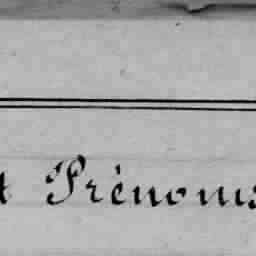 t Prénoms